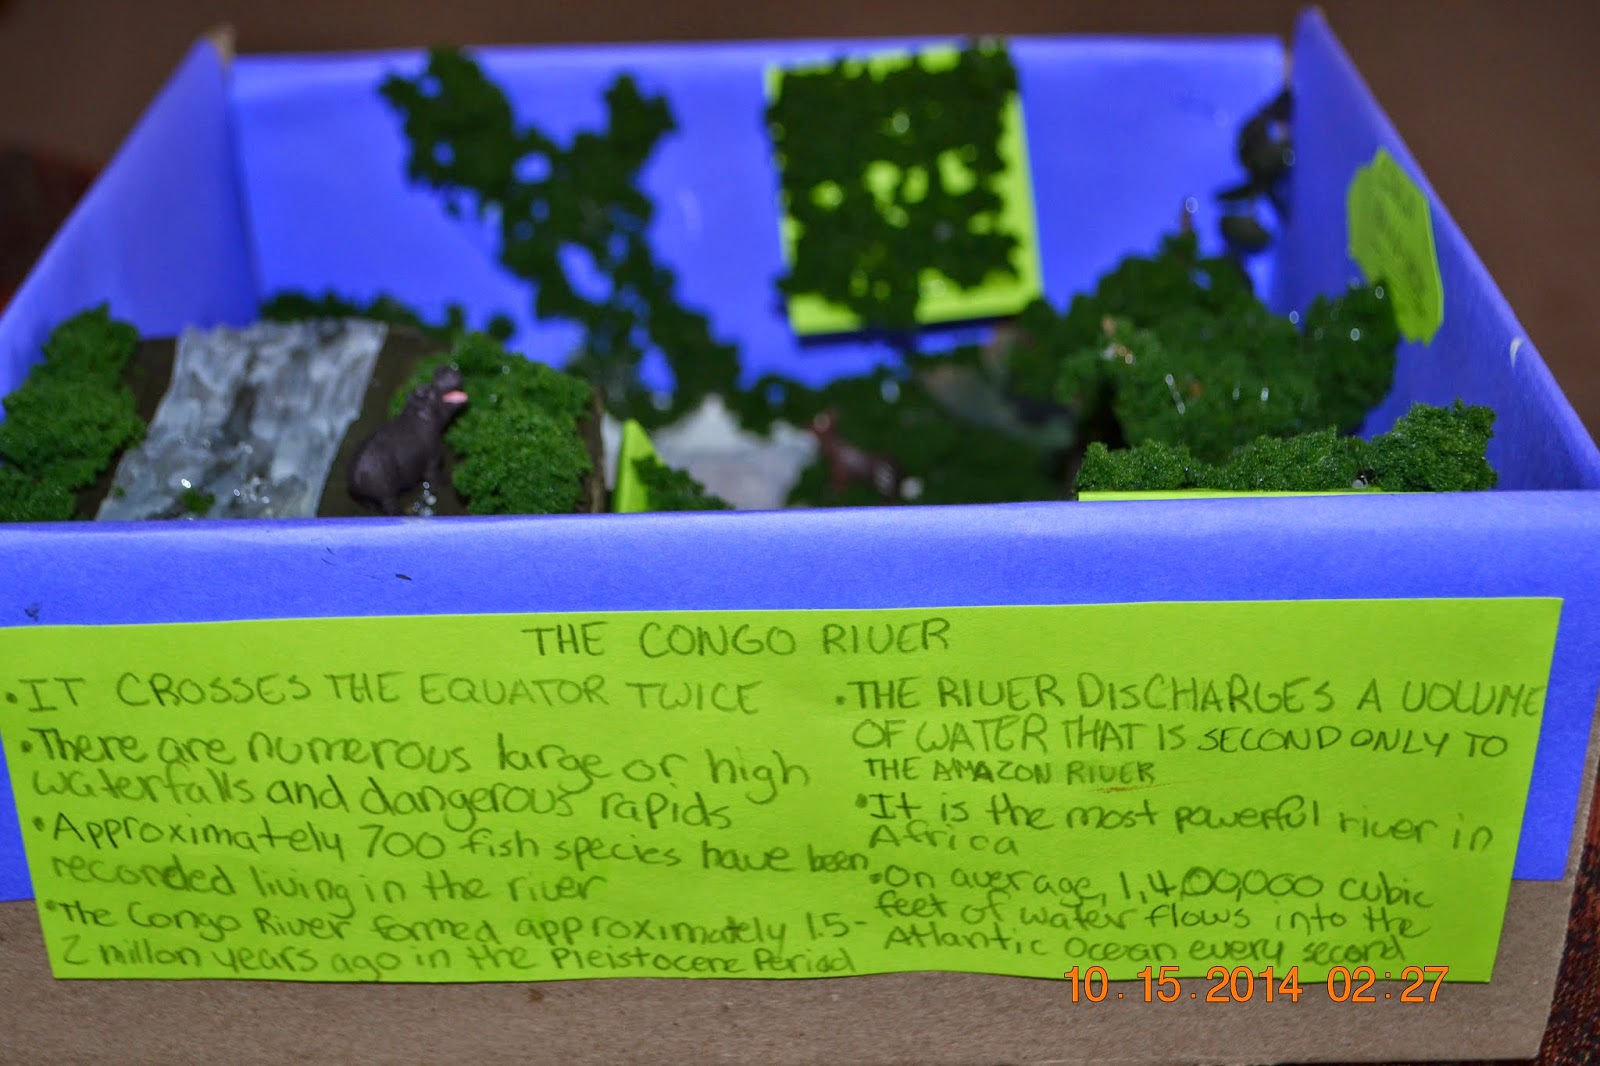 THE CONGO RIVER
• IT CROSSES THE EQUATOR TWICE
• There are numerous large or high
waterfalls and dangerous rapids
• Approximately 700 fish species have been
recorded living in the river
• The Congo River formed approximately 1.5-
2 millon years ago in the Pleistocene Period
• THE RIVER DISCHARGES A VOLUME
OF WATER THAT IS SECOND ONLY TO
THE AMAZON RIVER
• It is the most powerful river in
Africa
• On average, 1,4,00,000 cubic
feet of water flows into the
Atlantic Ocean every second
10.15.2014 02:27